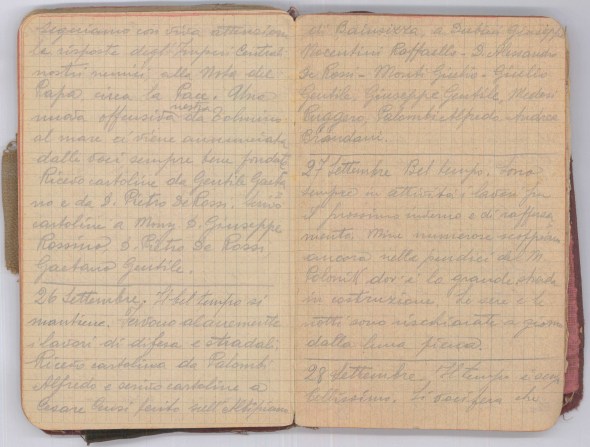 Seguiamo con viva attenzione
le risposte degl'Imperi Centrali
nostri nemici alla Nota del
Papa circa la Pace. Una
nuova offensiva nostra da Tolmino
al mare ci viene annunciata
dalle voci sempre bene fondate
Ricevo cartoline da Gentile Gaeta
no e da D. Pietro De Rossi. Scrivo
cartoline a Mons. D. Giuseppe
Rosmo D. Pietro De Rossi
Gaetano Gentile.
26 Settembre. Il bel tempo si
mantiene. Fervono alacremente
i lavori di difesa e stradali.
Ricevo cartolina da Palombi
Alfredo e scrivo cartoline a
Cesare ferito sull'Altipiano
di a Giuseppe
Nocentini Raffaello - D. Alessandro
De Rossi - Monti Giulio -
Gentile, Giuseppe Gentile, Medori
Ruggero, Palombi Alfredo Andrea
27 Settembre Bel tempo. Sono
sempre in attività i lavori per
il prossimo inverno e di raffor
mento. Mine numerose scoppiano
ancora nelle pendici del M.
dov'è la grande strada
in costruzione. Le sere e le
notti sono rischiarate a giorno
dalla luna piena.
28 Settembre Il tempo è sempre
bellissimo. Si che